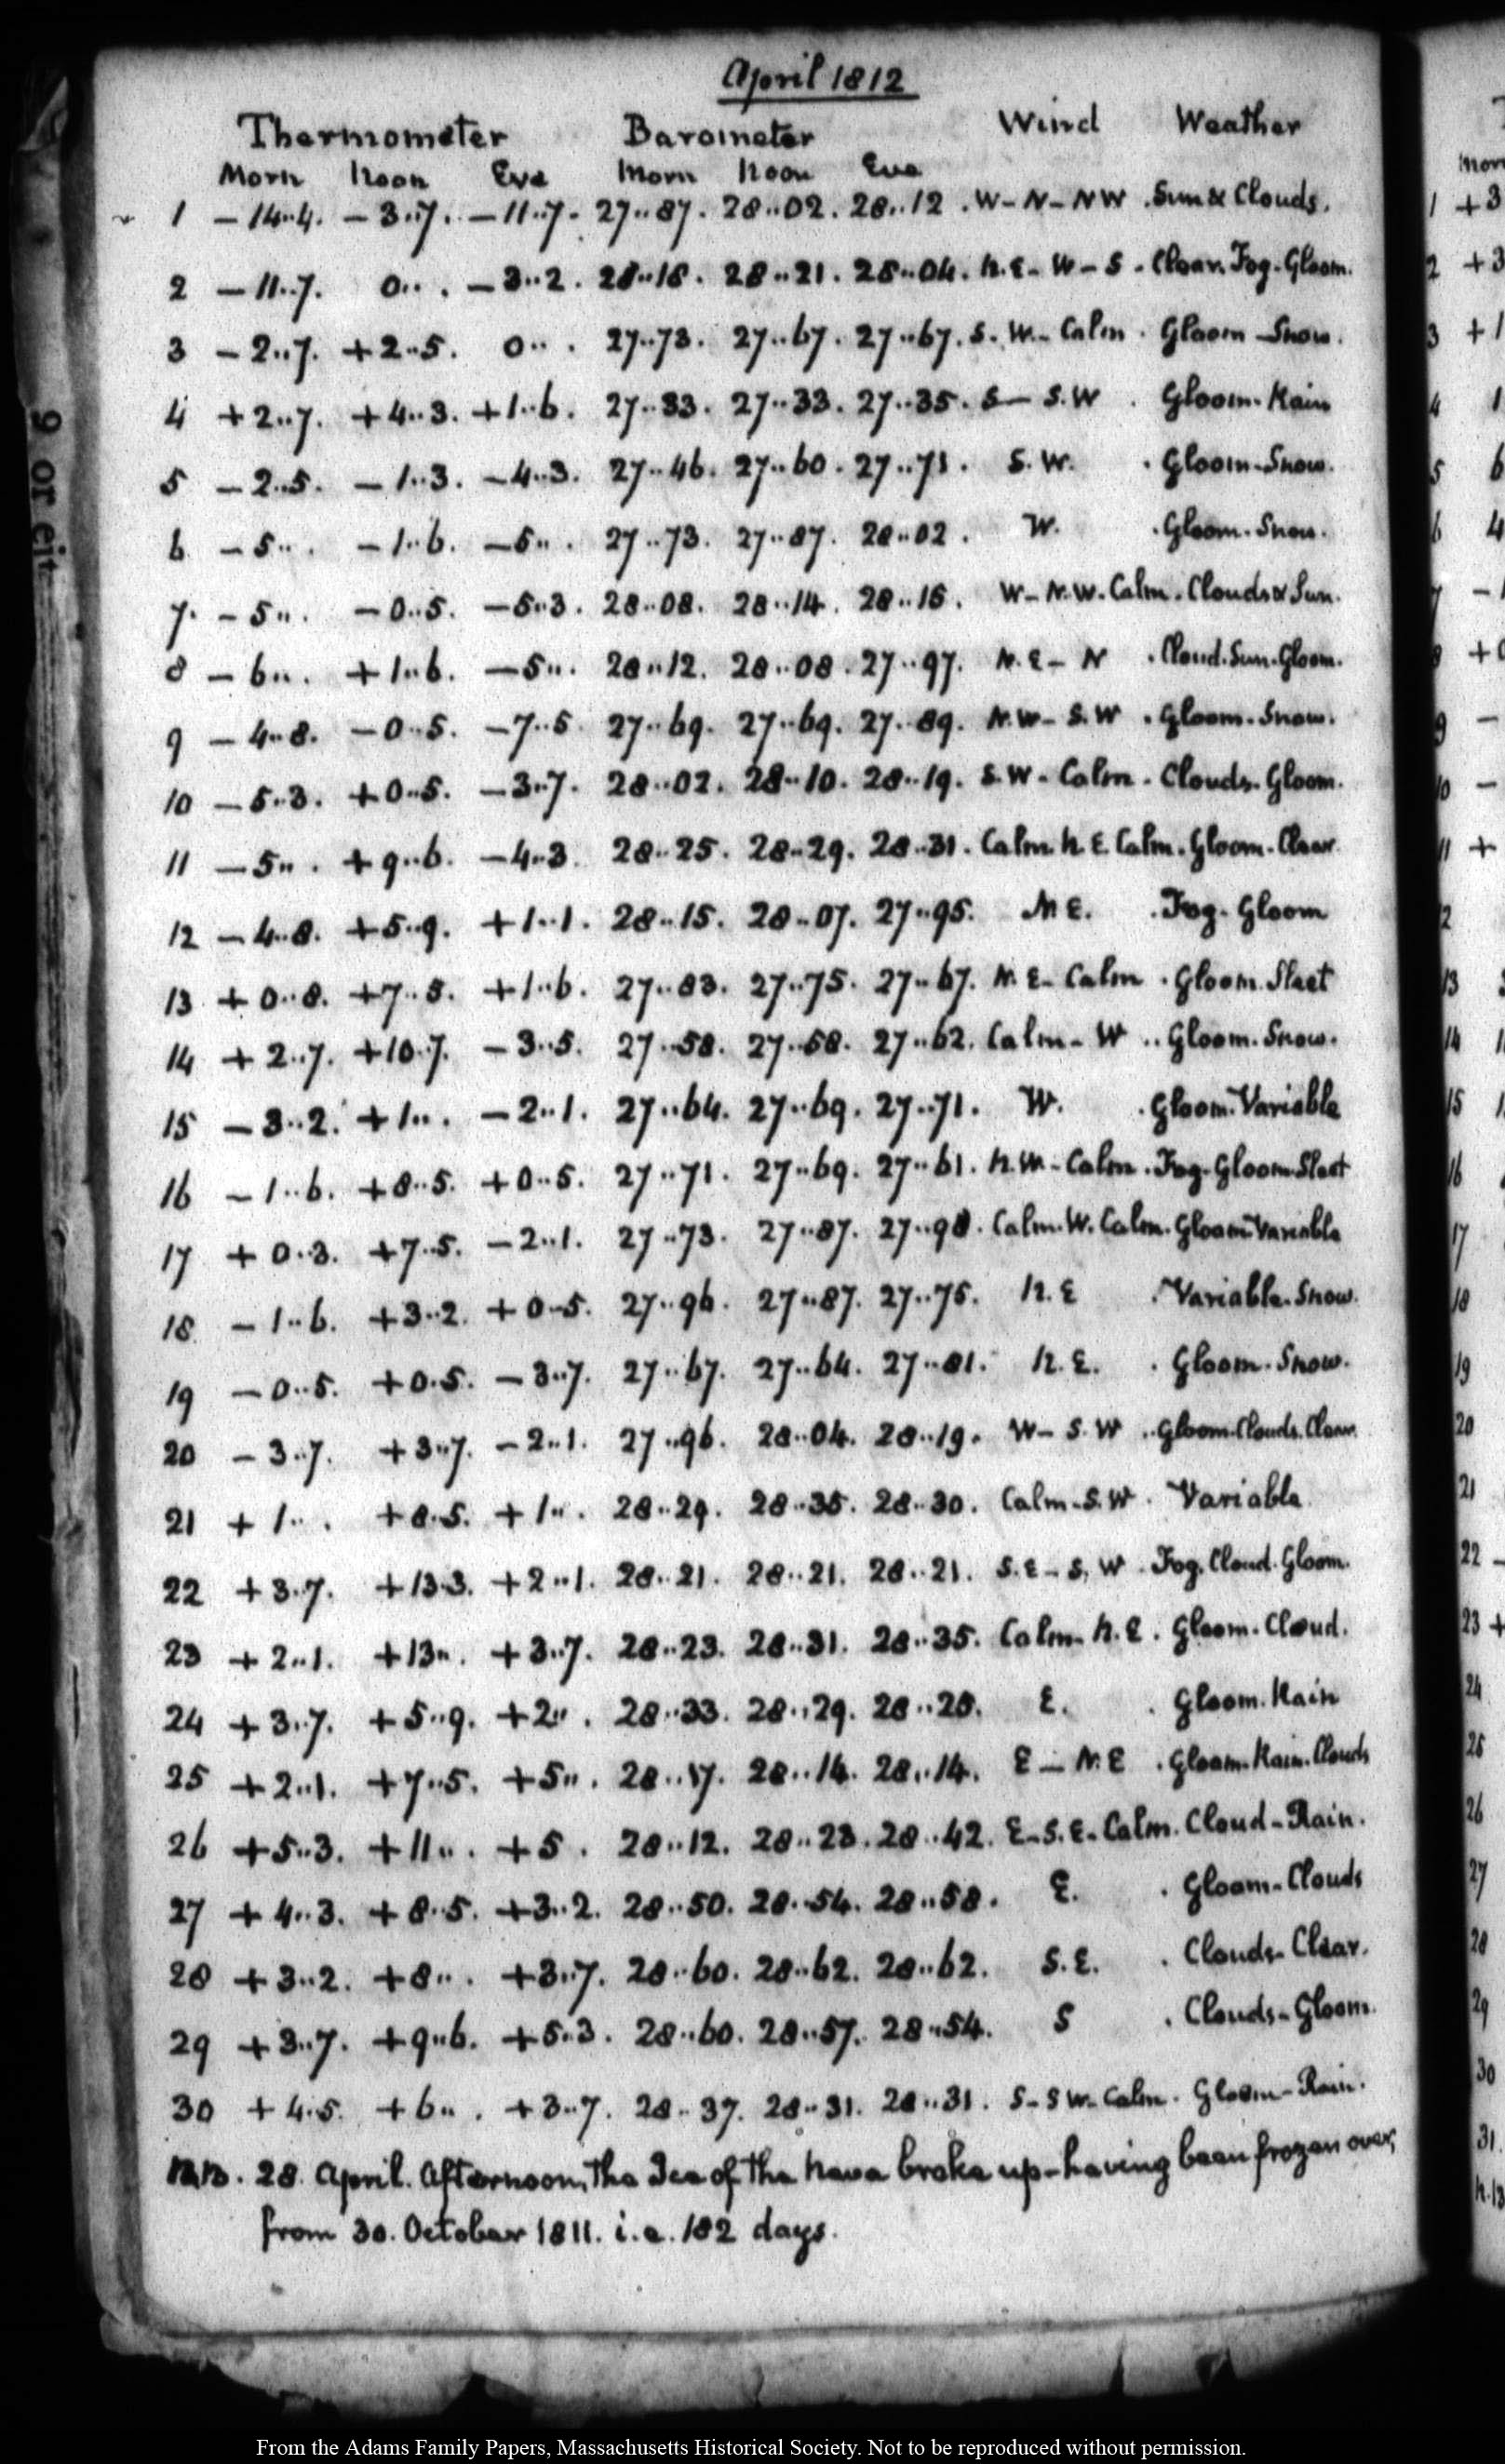 April 1812
Thermometer Barometer Wind Weather
Morn Noon Eve Morn Noon Eve
1 - 14..4. - 3..7. - 11..7. 27..87. 28..02. 28..12. W - N - NW. Sun & Clouds.
2 - 11..7. 0.. . - 3..2. 28..18. 28..21. 28..04. N.E - W - S. Clear. Fog. Gloom.
3 - 2..7. + 2..5. 0.. . 27..73. 27..67. 27..67. S. W. - Calm. Gloom - Snow.
4 + 2..7. + 4..3. + 1..6. 27..33. 27..33. 27..35. S - S.W. Gloom - Rain
5 - 2..5. - 1..3. - 4..3. 27..46. 27..60. 27..71. S.W. Gloom - Snow.
6 - 5.. . - 1..6. - 5.. . 27..73. 27..87. 28..02. W. Gloom - Snow.
7. - 5.. . - 0..5. - 5..3. 28..08. 28..14. 28..15. W - N.W. Calm. Clouds & Sun.
8 - 6.. . + 1..6. - 5.. . 28..12. 28..08. 27..97. N.E - N. Cloud. Sun. Gloom.
9 - 4..8. - 0..5. - 7..5 27..69. 27..69. 27..89. N.W - S.W. Gloom. Snow.
10 - 5..3. + 0..5. - 3..7. 28..02. 28..10. 28..19. S.W - Calm. Clouds. Gloom.
11 - 5.. . + 9..6. - 4..3. 28..25. 28..29. 28..31. Calm. N E. Calm. Gloom. Clear.
12 - 4..8. + 5..9. + 1..1. 28..15. 28..07. 27..95. N E. Fog. Gloom
13 + 0..8. + 7..5. + 1..6. 27..83. 27..75. 27..67. N. E - Calm. Gloom. Sleet
14 + 2..7. + 10..7. - 3..5. 27..58. 27..58. 27..62. Calm - W.. Gloom. Snow.
15 - 3..2. + 1.. . - 2..1. 27..64. 27..69. 27..71. W. Gloom. Variable
16 - 1..6. + 8..5. + 0..5. 27..71. 27..69. 27..61. N.W - Calm. Fog. Gloom. Sleet
17 + 0..3. + 7..5. - 2..1. 27..73. 27..87. 27..98. Calm. W. Calm. Gloom Variable
18. - 1..6. + 3..2. + 0..5. 27..96. 27..87. 27..75. N.E. Variable. Snow.
19 - 0..5. + 0..5. - 3..7. 27..67. 27..64. 27..81. N.E. Gloom. Snow.
20 - 3..7. + 3..7. - 2..1. 27..96. 28..04. 28..19. W - S.W. Gloom. Clouds. Clear.
21 + 1.. . + 8..5. + 1.. . 28..29. 28..35. 28..30. Calm - S.W. Variable
22 + 3..7. + 13..3. + 2..1. 28..21. 28..21. 28..21. S.E - S.W. Fog. Cloud. Gloom.
23 + 2..1. + 13.. . + 3..7. 28..23. 28..31. 28..35. Calm - N.E. Gloom. Cloud.
24 + 3..7. + 5..9. + 2.. . 28..33. 28..29. 28..25. E. Gloom. Rain
25 + 2..1. + 7..5. + 5.. . 28..17. 28..14. 28..14. E - N.E. Gloom. Rain. Clouds
26 + 5..3. + 11.. . + 5. 28..12. 28..23. 28..42. E - S.E - Calm. Cloud - Rain.
27 + 4..3. + 8..5. + 3..2. 28..50. 28..54. 28..58. E. Gloom - Clouds
28 + 3..2. + 8.. . + 3..7. 28..60. 28..62. 28..62. S.E. Clouds - Clear.
29 + 3..7. + 9..6. + 5..3. 28..60. 28..57. 28..54. S. Clouds - Gloom.
30 + 4..5. + 6.. . + 3..7. 28..37. 28..31. 28..31. S - S W - Calm. Gloom - Rain.
N.B. 28. April. Afternoon, the Ice of the Neva broke up - having been frozen over,
from 30. October 1811. i.e. 182 days.
From the Adams Family Papers, Massachusetts Historical Society. Not to be reproduced without permission.